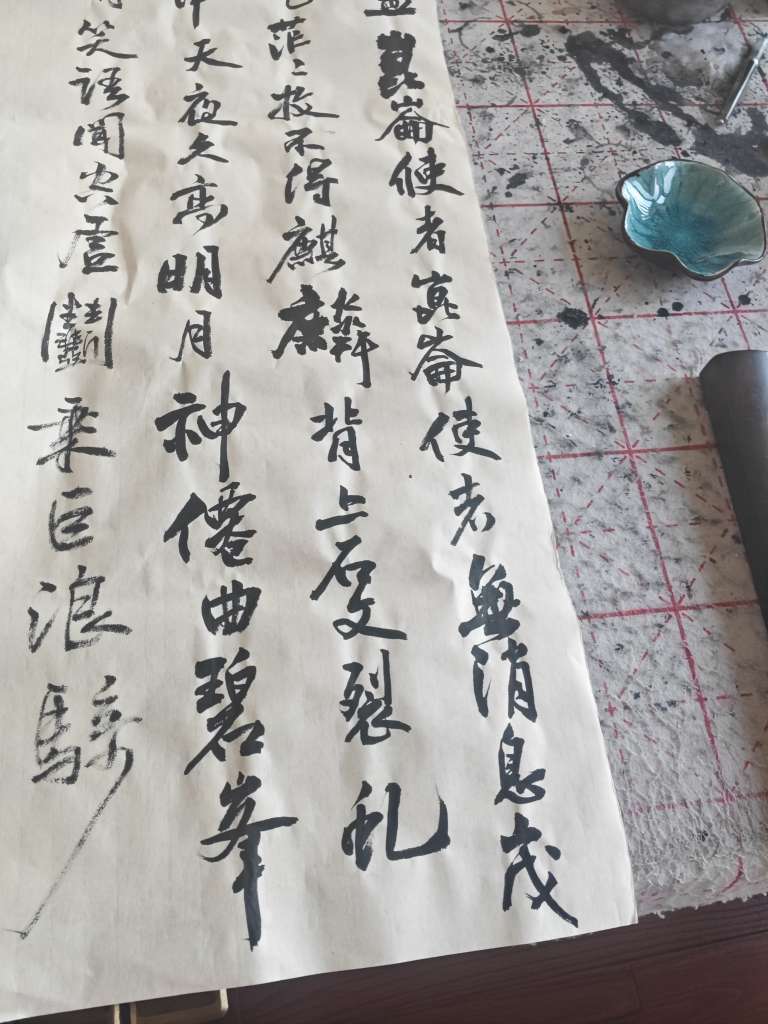 崑崙使者崑崙使者無消息茂
茫〻收不得麒麟背上石文裂虬
天夜久高明月神僊曲碧峯
笑語聞空虛鬭乘巨浪騎